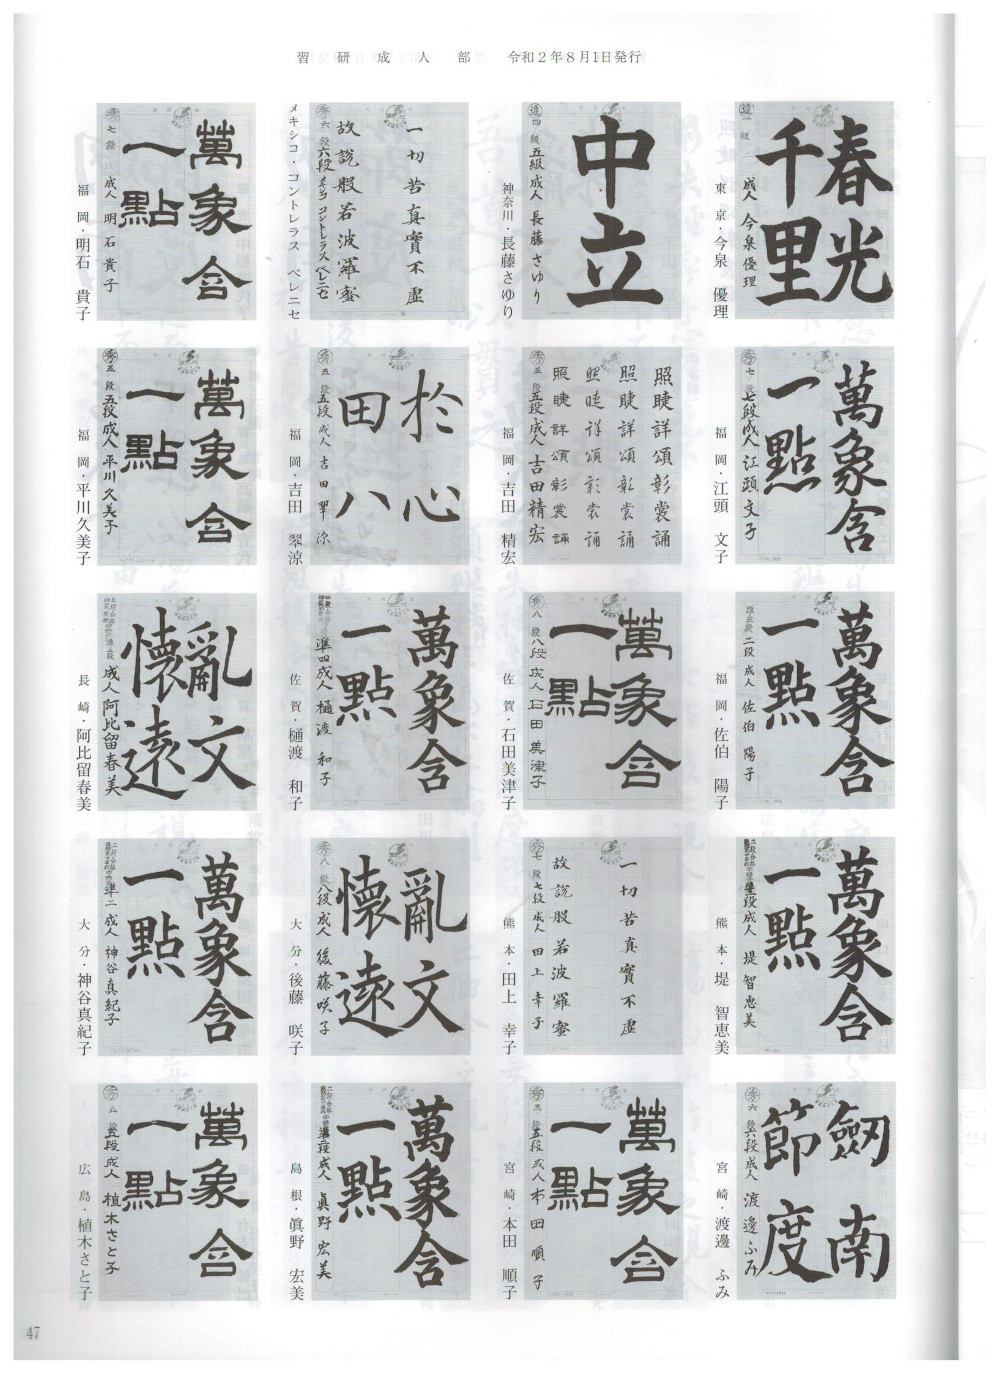 習研成人部 令和2年8月1日発行
春光
千里
成人 今泉優理
東京・今泉 優理
中立
四級
五級 成人 長藤さゆり
神奈川・長藤さゆり
一切苦真實不虚
故説般若波羅蜜
秀 六段
六段 メキシコ コントレラス ベレニセ
メキシコ・コントレラス ベレニセ
萬象含
一點
秀 七段
成人 明石貴子
福岡・明石 貴子
萬象含
一點
秀 七段
七段 成人 江頭文子
福岡・江頭 文子
照睫詳頌彰裳誦
照睫詳頌彰裳誦
照睫詳頌彰裳誦
照睫詳頌彰裳誦
秀 五段
五段 成人 吉田精宏
福岡・吉田 精宏
於心
田八
秀 五段
五段 成人 吉田翠涼
福岡・吉田 翠涼
萬象含
一點
秀 五段
五段 成人 平川久美子
福岡・平川久美子
萬象含
一點
準三段
二段 成人 佐伯陽子
福岡・佐伯 陽子
萬象含
一點
秀 八段
八段 成人 石田美津子
佐賀・石田美津子
萬象含
一點
準四 成人 樋渡和子
佐賀・樋渡 和子
亂文
懷遠
成人 阿比留春美
長崎・阿比留春美
萬象含
一點
成人 堤智恵美
熊本・堤 智恵美
一切苦真實不虚
故説般若波羅蜜
秀 七段
七段 成人 田上幸子
熊本・田上 幸子
亂文
懷遠
秀 八段
八段 成人 後藤咲子
大分・後藤 咲子
萬象含
一點
準二 成人 神谷真紀子
大分・神谷真紀子
劔南
節度
秀 六段
六段 成人 渡邊ふみ
宮崎・渡邊 ふみ
萬象含
一點
秀 五段
五段 成人 本田順子
宮崎・本田 順子
萬象含
一點
成人 眞野宏美
島根・眞野 宏美
萬象含
一點
秀 五段
五段 成人 植木さと子
広島・植木さと子
47